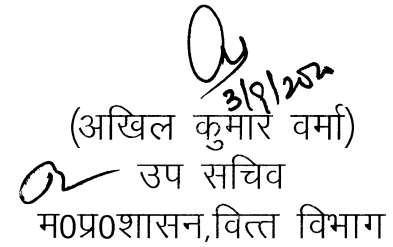 (अखिल कुमार वर्मा)
उप सचिव
म0प्र0शासन,वित्त विभाग